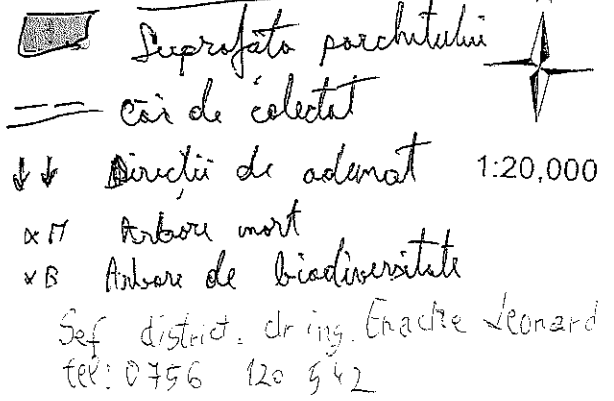 Suprafața parchetului
Căi de colectat
Direcții de adunat 1:20,000
xM Arbore mort
xB Arbore de biodiversitate
Șef district. dr ing. Enache Leonard
tel: 0756 120 542